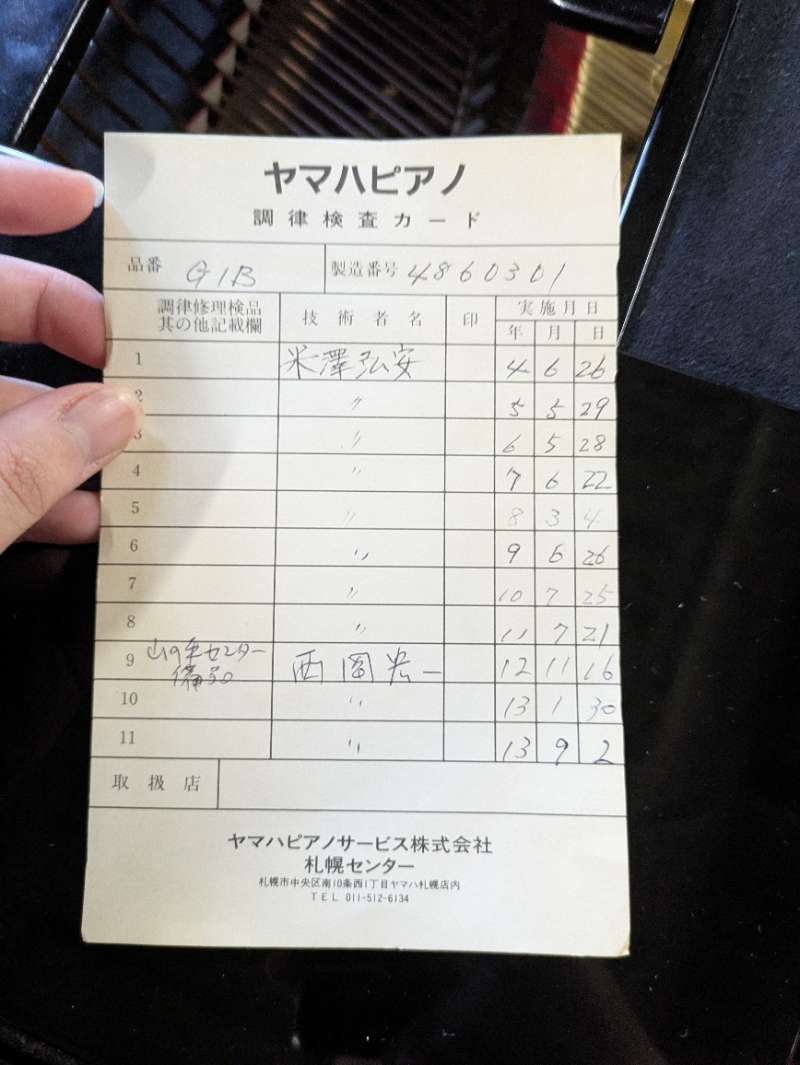 ヤマハピアノ
調律検査カード
品番 G1B 製造番号 4860301
調律修理検品 其の他記載欄 技術者名 印 実施月日 年 月 日
1 米澤弘安 4 6 26
2 〃 5 5 29
3 〃 6 5 28
4 〃 7 6 22
5 〃 8 3 4
6 〃 9 6 26
7 〃 10 7 25
8 〃 11 7 21
9 センター 西岡宏一 12 11 16
10 〃 13 1 30
11 〃 13 9 2
取扱店
ヤマハピアノサービス株式会社
札幌センター
札幌市中央区南10条西1丁目ヤマハ札幌店内
TEL 011-512-6134